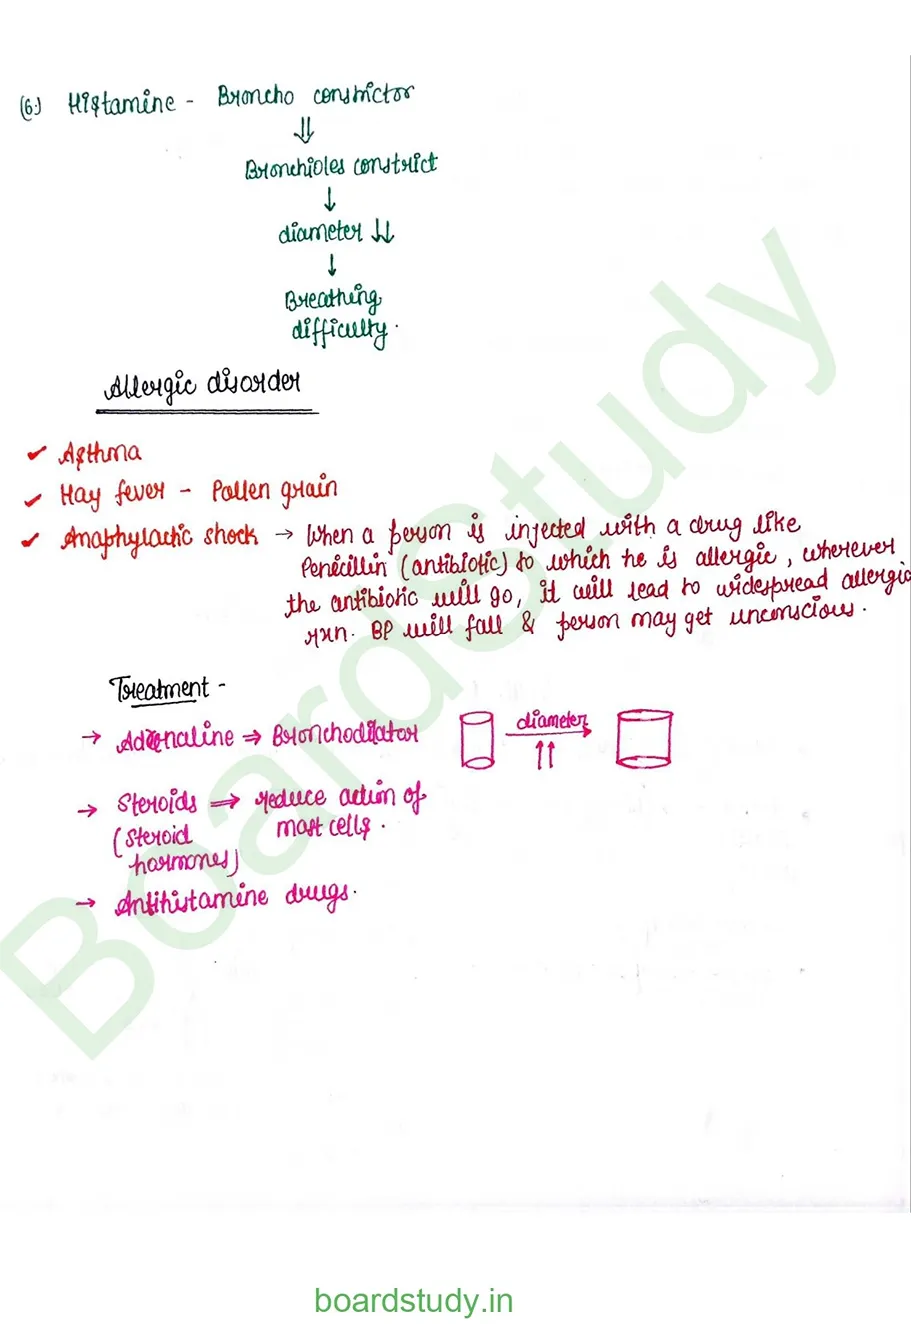 (6.) Histamine - Broncho constrictor
⇓
Bronchioles constrict
↓
diameter ↓↓
↓
Breathing
difficulty.
Allergic disorder
✓ Asthma
✓ Hay fever - Pollen grain
✓ Anaphylactic shock → When a person is injected with a drug like
Penicillin (antibiotic) to which he is allergic, wherever
the antibiotic will go, it will lead to widespread allergic
rxn. BP will fall & person may get unconscious.
Treatment -
→ Adrenaline ⇒ Bronchodilator
diameter
↑↑
→ Steroids ⇒ reduce action of
(Steroid mast cells.
hormones)
→ Antihistamine drugs.
BoardStudy
boardstudy.in